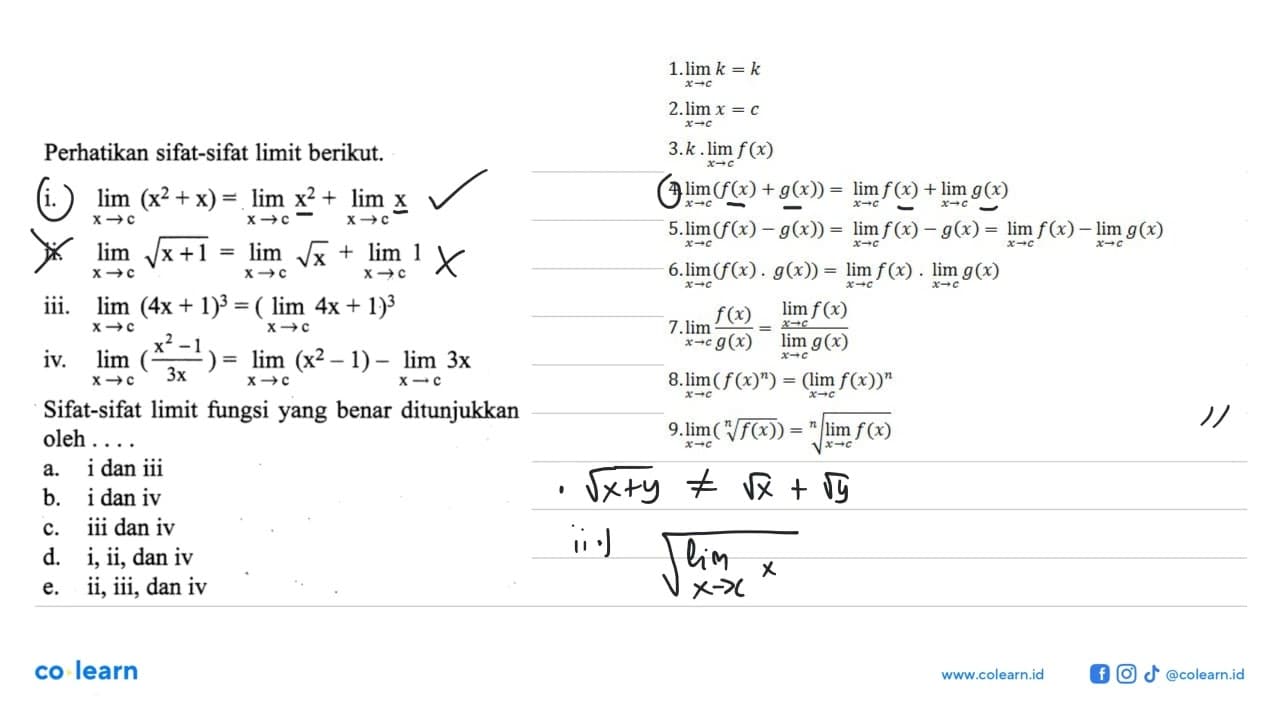 Perhatikan sifat-sifat limit berikut.
i. lim x→c (x² + x) = lim x→c x² + lim x→c x ✓
ii. lim x→c √(x + 1) = lim x→c √x + lim x→c 1 X
iii. lim x→c (4x + 1)³ = ( lim x→c 4x + 1)³
iv. lim x→c (x² – 1 / 3x) = lim x→c (x² – 1) – lim x→c 3x
Sifat-sifat limit fungsi yang benar ditunjukkan
oleh . . . .
a. i dan iii
b. i dan iv
c. iii dan iv
d. i, ii, dan iv
e. ii, iii, dan iv
1. lim x→c k = k
2. lim x→c x = c
3. k . lim x→c f(x)
4. lim x→c (f(x) + g(x)) = lim x→c f(x) + lim x→c g(x)
5. lim x→c (f(x) − g(x)) = lim x→c f(x) − g(x) = lim x→c f(x) − lim x→c g(x)
6. lim x→c (f(x) . g(x)) = lim x→c f(x) . lim x→c g(x)
7. lim x→c f(x)/g(x) = lim x→c f(x) / lim x→c g(x)
8. lim x→c (f(x)ⁿ) = (lim x→c f(x))ⁿ
9. lim x→c (ⁿ√f(x)) = ⁿ√(lim x→c f(x))
//
. √(x+y) ≠ √x + √y
ii.) √(lim x→c x)
co learn
www.colearn.id
@colearn.id